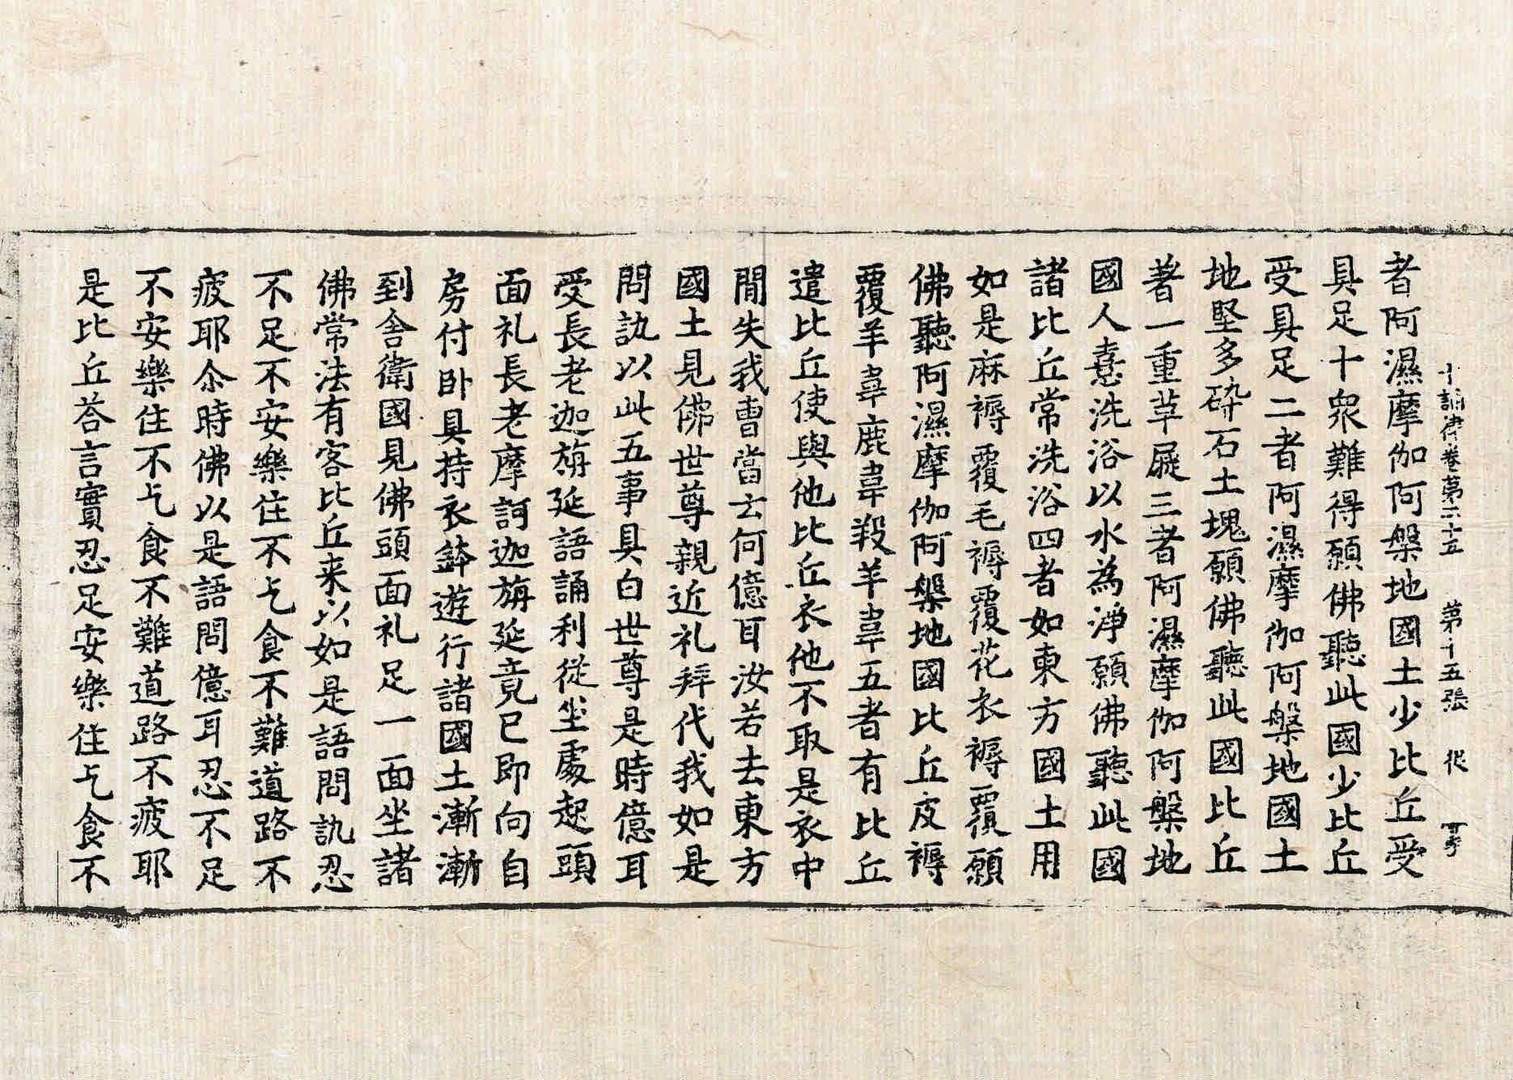 十誦律卷第二十五 第十五張 從
者阿濕摩伽阿槃地國土少比丘受
具足十衆難得願佛聽此國少比丘
受具足二者阿濕摩伽阿槃地國土
地堅多碎石土塊願佛聽此國比丘
著一重革屣三者阿濕摩伽阿槃地
國人憙洗浴以水為淨願佛聽此國
諸比丘常洗浴四者如東方國土用
如是麻褥覆毛褥覆花衣褥覆願
佛聽阿濕摩伽阿槃地國比丘皮褥
覆羊韋鹿韋羖羊韋五者有比丘
遣比丘使與他比丘衣他不取是衣中
間失我曹當云何億耳汝若去東方
國土見佛世尊親近礼拜代我如是
問訊以此五事具白世尊是時億耳
受長老迦旃延語誦利從坐處起頭
面礼長老摩訶迦旃延竟已即向自
房付卧具持衣鉢遊行諸國土漸漸
到舍衛國見佛頭面礼足一面坐諸
佛常法有客比丘来以如是語問訊忍
不足不安樂住不乞食不難道路不
疲耶尒時佛以是語問億耳忍不足
不安樂住不乞食不難道路不疲耶
是比丘荅言實忍足安樂住乞食不